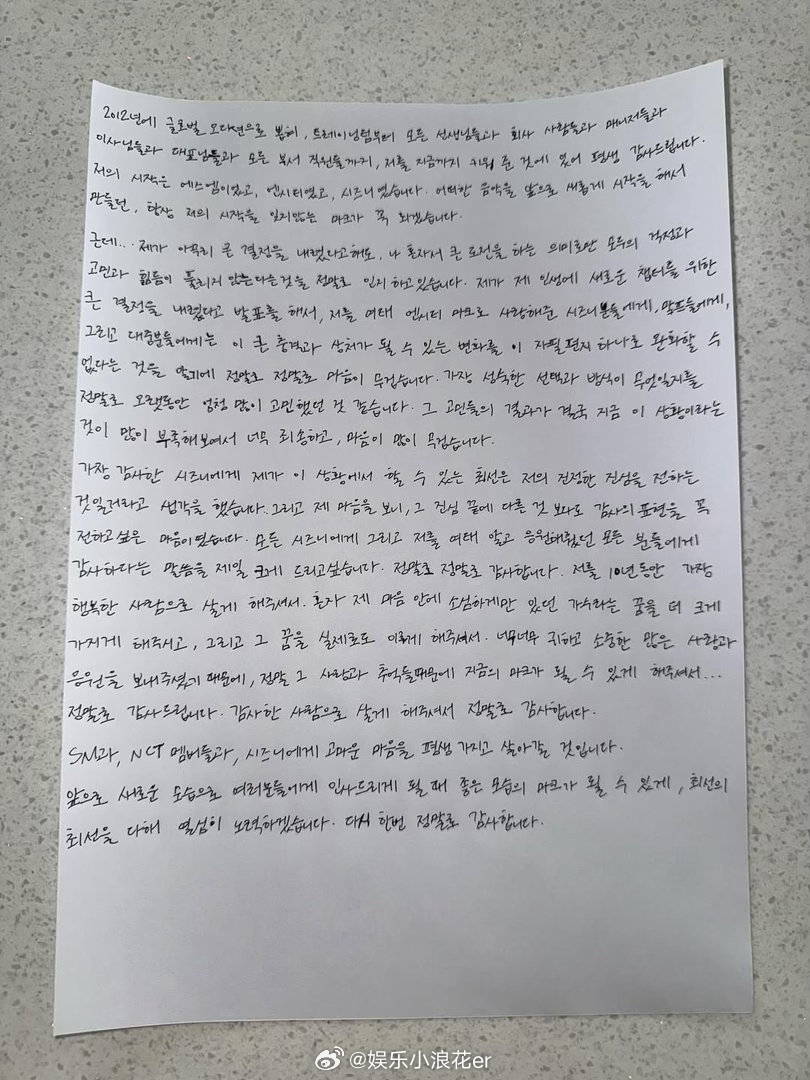 2012년에 글로벌 오디션으로 뽑혀, 트레이닝팀부터 모든 선생님들과 회사 사람들과 매니저들과
이사님들과 대표님들과 모든 부서 직원들까지, 저를 지금까지 키워 준 것에 있어 평생 감사드립니다.
저의 시작은 에스엠이였고, 엔시티였고, 시즈니였습니다. 어떠한 음악을 앞으로 새롭게 시작을 해서
만들던, 항상 저의 시작을 잊지않는 마크가 꼭 되겠습니다.
근데... 제가 아무리 큰 결정을 내렸다고해도, 나 혼자서 큰 도전을 하는 의미로만 모두의 걱정과
고민과 힘듦이 풀리지 않는다는것을 정말로 인지 하고있습니다. 제가 제 인생에 새로운 챕터를 위한
큰 결정을 내렸다고 발표를 해서, 저를 여태 엔시티 마크로 사랑해준 시즈니분들에게, 맠프들에게,
그리고 대중분들에게는 이 큰 충격과 상처가 될 수 있는 변화를 이 자필편지 하나로 완화할 수
없다는 것을 알기에 정말로 정말로 마음이 무겁습니다. 가장 성숙한 선택과 방식이 무엇일지를
정말로 오랫동안 엄청 많이 고민했던 것 같습니다. 그 고민들의 결과가 결국 지금 이 상황이라는
것이 많이 부족해보여서 너무 죄송하고, 마음이 많이 무겁습니다.
가장 감사한 시즈니에게 제가 이 상황에서 할 수 있는 최선은 저의 진정한 진심을 전하는
것일거라고 생각을 했습니다. 그리고 제 마음을 보니, 그 진심 끝에 다른 것 보다도 감사의 표현을 꼭
전하고싶은 마음이였습니다. 모든 시즈니에게 그리고 저를 여태 알고 응원해줬던 모든 분들에게
감사하다는 말씀을 제일 크게 드리고싶습니다. 정말로 정말로 감사합니다. 저를 10년동안 가장
행복한 사람으로 살게 해주셔서. 혼자 제 마음 안에 소심하게만 있던 가수라는 꿈을 더 크게
가지게 해주시고, 그리고 그 꿈을 실제로도 이루게 해주셔서. 너무너무 귀하고 소중한 많은 사랑과
응원을 보내주셨기 때문에, 정말 그 사랑과 추억들때문에 지금의 마크가 될 수 있게 해주셔서...
정말로 감사드립니다. 감사한 사람으로 살게 해주셔서 정말로 감사합니다.
SM과, NCT 멤버들과, 시즈니에게 고마운 마음을 평생 가지고 살아갈 것입니다.
앞으로 새로운 모습으로 여러분들에게 인사드리게 될 때 좋은 모습의 마크가 될 수 있게, 최선의
최선을 다해 열심히 노력하겠습니다. 다시 한번 정말로 감사합니다.
@娱乐小浪花er